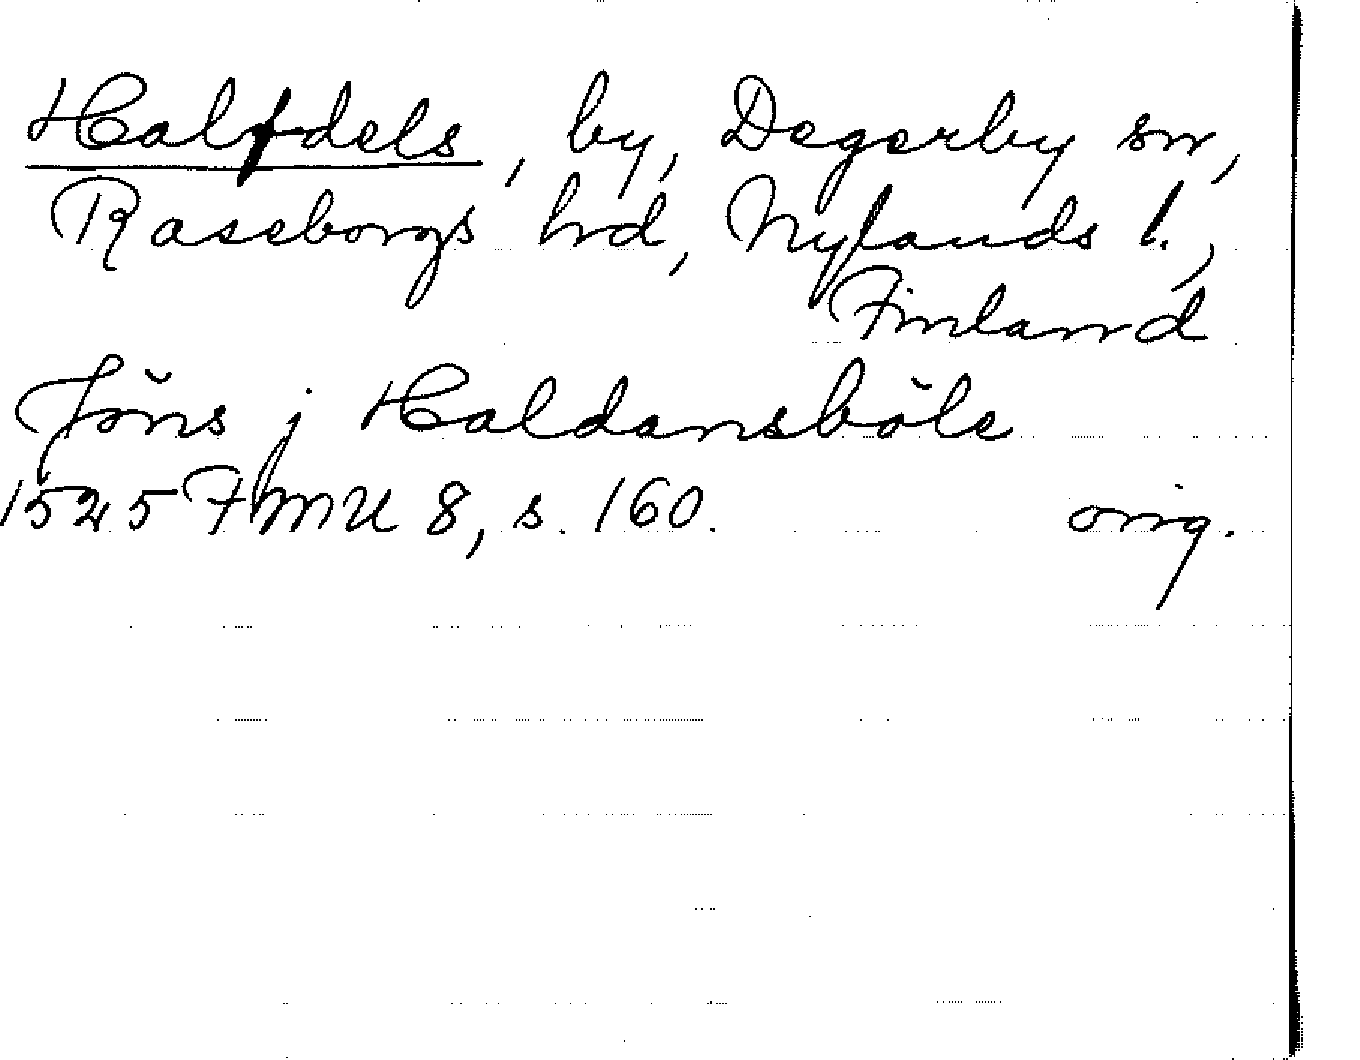 Halfdels, by, Degerby sn,
Raseborgs hrd, Nylands l.,
Finland
Jöns j Haldansböle
1525 FMU 8, s. 160. orig.